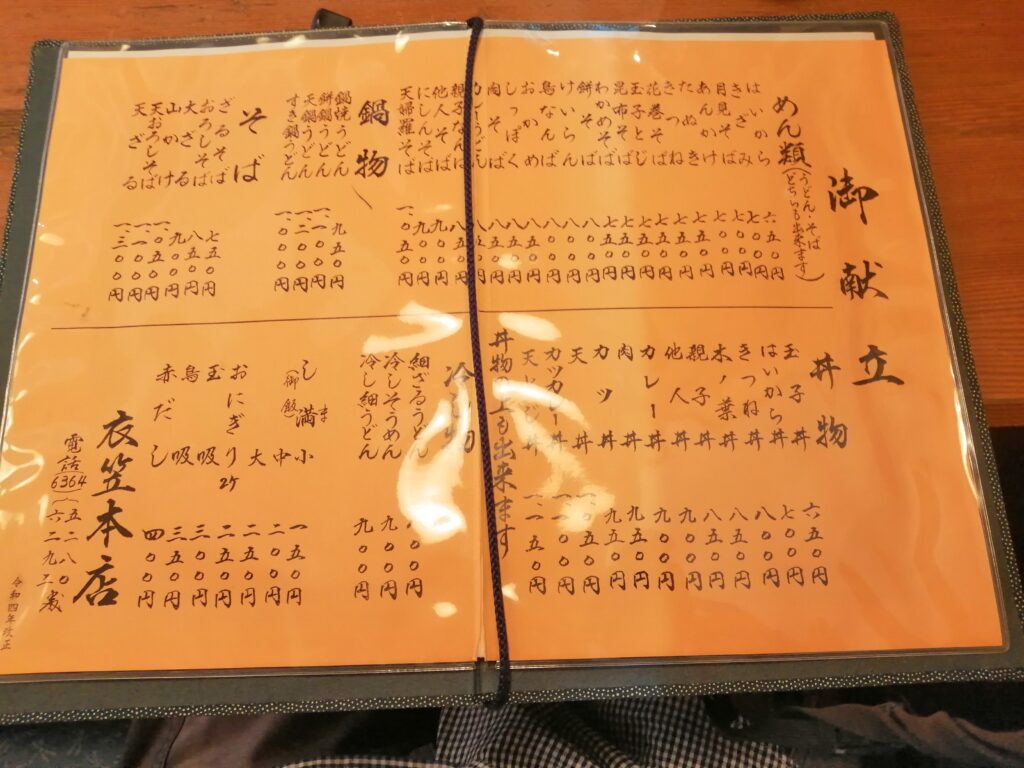 御献立
めん類(うどん・そばどちらも出来ます)
はいから 六五〇円
きざみ 七〇〇円
月見そば 七〇〇円
あんかけ 七〇〇円
たぬき 七五〇円
きつね 七五〇円
花巻そば 七五〇円
玉子とじ 七五〇円
昆布そば 七五〇円
わかめそば 七五〇円
餅そば 八〇〇円
けいらん 八〇〇円
鳥なんば 八〇〇円
おかめ 八五〇円
しっぽく 八五〇円
肉そば 八五〇円
カレーうどん 八五〇円
親子なんば 八五〇円
他人そば 九〇〇円
にしんそば 九〇〇円
天婦羅そば 一、〇五〇円
鍋物
鍋焼うどん 九五〇円
餅鍋うどん 一、〇〇〇円
天鍋うどん 一、二〇〇円
すき鍋うどん 一、一〇〇円
そば
ざるそば 七五〇円
おろしそば 八五〇円
大ざる 九〇〇円
山かけ 一、〇五〇円
天おろしそば 一、一〇〇円
天ざる 一、三〇〇円
丼物
玉子丼 六五〇円
はいから丼 七〇〇円
きつね丼 八〇〇円
木ノ葉丼 八五〇円
親子丼 八五〇円
他人丼 九〇〇円
カレー丼 九〇〇円
肉丼 九五〇円
カツ丼 九五〇円
天丼
カツカレー丼
丼 一、一五〇円
丼物の上も出来ます
冷し物
細ざるうどん
冷しそうめん 九〇〇円
冷し細うどん 九〇〇円
しま満(御飯)小 一五〇円
中 二〇〇円
大 二五〇円
おにぎり 2ケ 二五〇円
玉吸 三〇〇円
鳥吸 三五〇円
赤だし 四〇〇円
衣笠本店
電話(6364)五二八〇
六二九三
令和四年改正